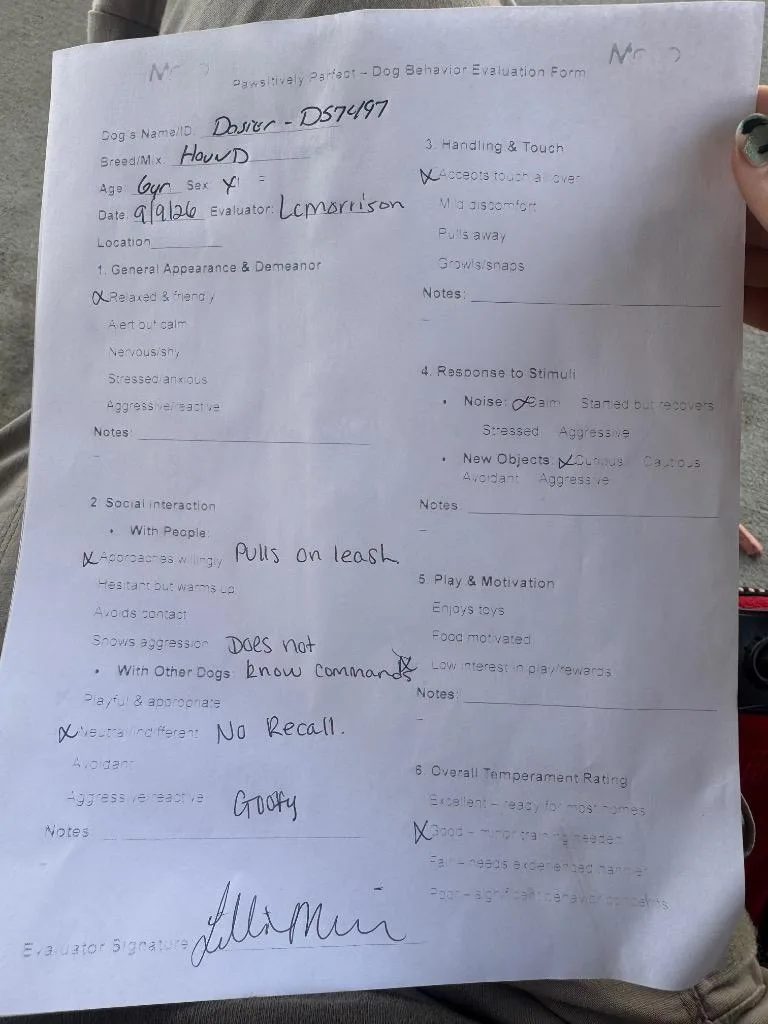 Pawsitively Perfect – Dog Behavior Evaluation Form
Dog's Name/ID: Dosier - DS7497
Breed/Mix: Hound
Age: 6yr Sex:
Date: 9/9/26 Evaluator: Lcmorrison
Location
1. General Appearance & Demeanor
Relaxed & friendly
Alert but calm
Nervous/shy
Stressed/anxious
Aggressive/reactive
Notes:
2. Social Interaction
• With People:
Approaches willingly Pulls on leash.
Hesitant but warms up
Avoids contact
Shows aggression Does not
• With Other Dogs: know commands
Playful & appropriate
Neutral/indifferent No Recall.
Avoidant
Aggressive/reactive Goofy
Notes
Evaluator Signature
3. Handling & Touch
Accepts touch all over
Mild discomfort
Pulls away
Growls/snaps
Notes:
4. Response to Stimuli
• Noise: Calm Startled but recovers
Stressed Aggressive
• New Objects: Curious Cautious
Avoidant Aggressive
Notes:
5. Play & Motivation
Enjoys toys
Food motivated
Low interest in play/rewards
Notes:
6. Overall Temperament Rating
Excellent – ready for most homes
Good – minor training needed
Fair – needs experienced handler
Poor – significant behavior concerns